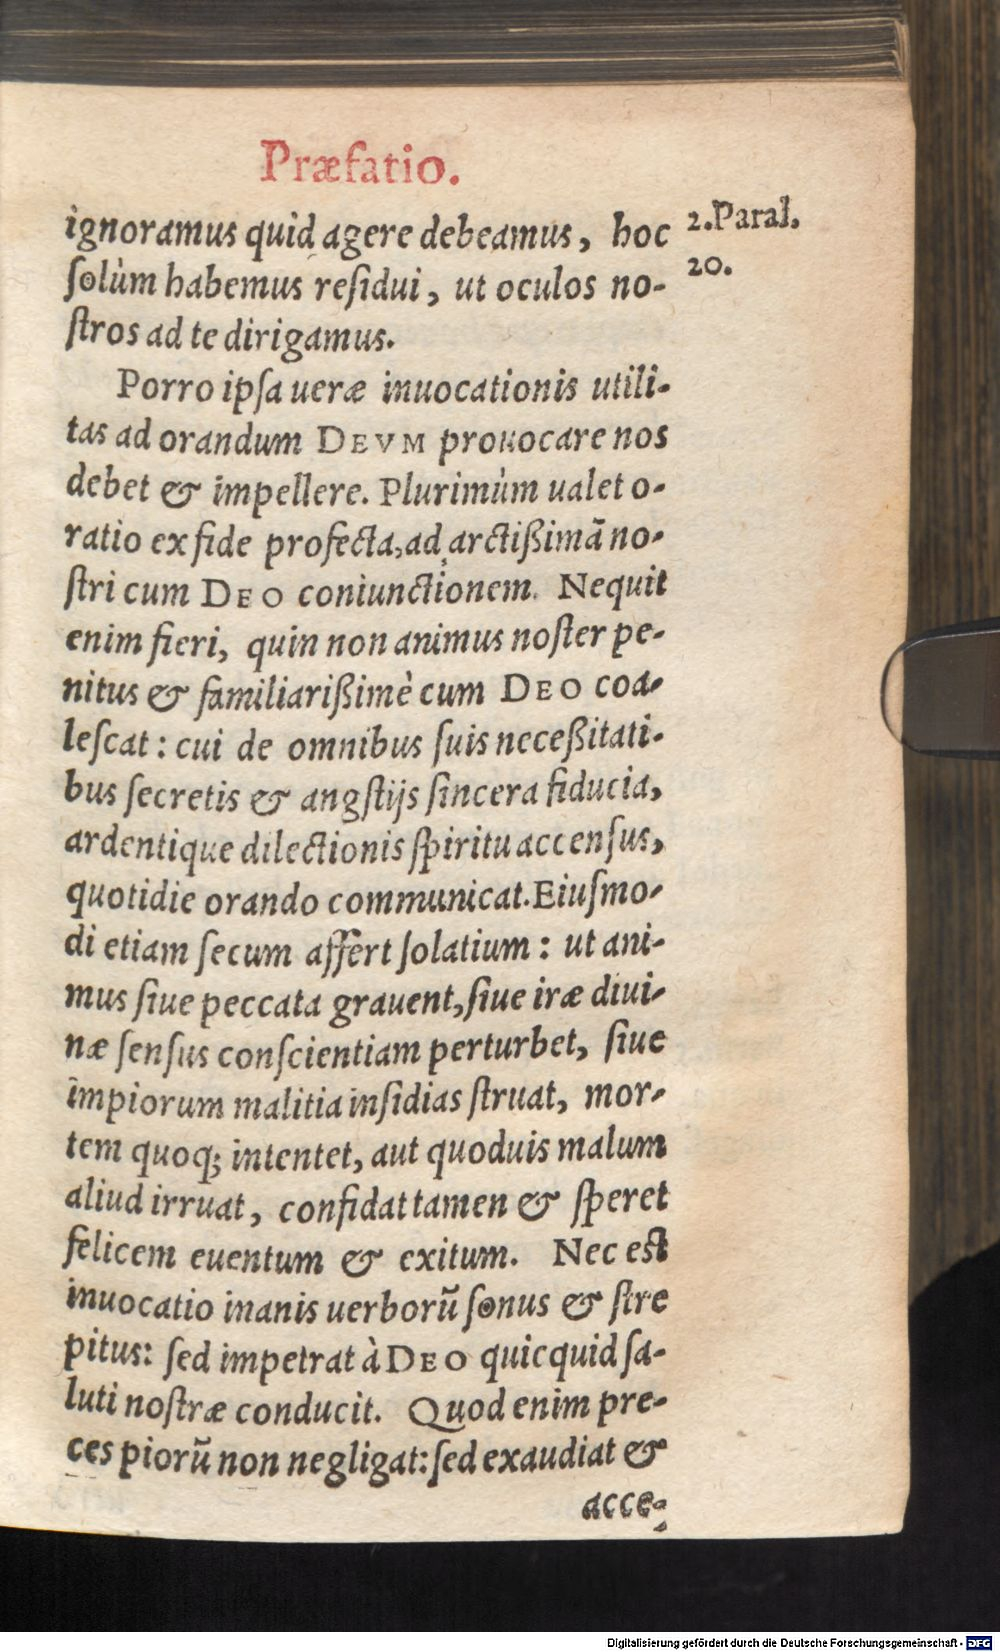 Præfatio.
ignoramus quid agere debeamus, hoc
2. Paral.
solùm habemus residui, ut oculos no-
20.
stros ad te dirigamus.
Porro ipsa ueræ inuocationis utili-
tas ad orandum DEVM prouocare nos
debet & impellere. Plurimùm ualet o-
ratio ex fide profecta, ad arctißimā no-
stri cum DEO coniunctionem. Nequit
enim fieri, quin non animus noster pe-
nitus & familiarißimè cum DEO coa-
lescat: cui de omnibus suis neceßitati-
bus secretis & angstijs sincera fiducia,
ardentique dilectionis spiritu accensus,
quotidie orando communicat. Eiusmo-
di etiam secum affert solatium: ut ani-
mus siue peccata grauent, siue iræ diui-
næ sensus conscientiam perturbet, siue
impiorum malitia insidias struat, mor-
tem quoq; intentet, aut quoduis malum
aliud irruat, confidat tamen & speret
felicem euentum & exitum. Nec est
inuocatio inanis uerborū sonus & stre
pitus: sed impetrat à DEO quicquid sa-
luti nostræ conducit. Quod enim pre-
ces piorū non negligat: sed exaudiat &
acce-
Digitalisierung gefördert durch die Deutsche Forschungsgemeinschaft - DFG